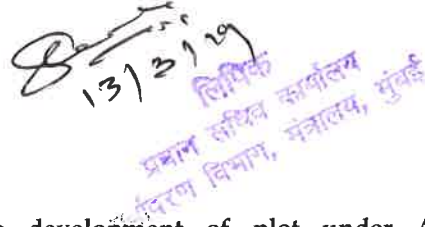 13/3/19
लिपिक
प्रधान सचिव कार्यालय
विभाग, मंत्रालय, मुंबई
development of plot under